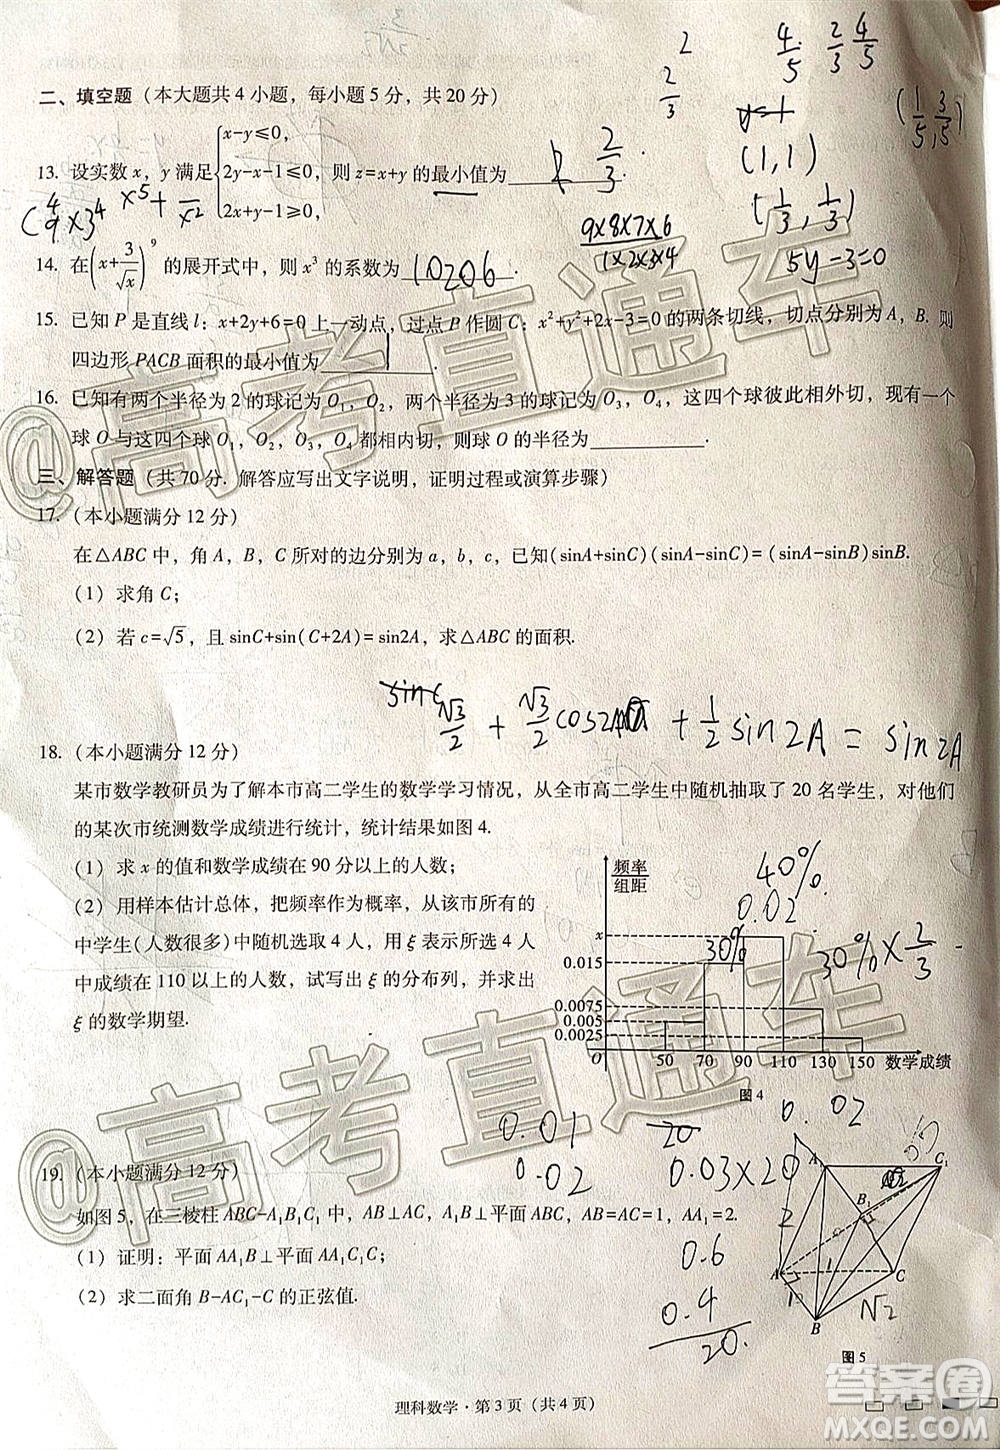 二、填空题（本大题共4小题，每小题5分，共20分）
13. 设实数 x，y 满足 {x-y≤0, 2y-x-1≤0, 2x+y-1≥0, 则 z=x+y 的最小值为 2/3
14. 在(x+3/√x)^9 的展开式中，则 x³ 的系数为 10206.
15. 已知 P 是直线 l：x+2y+6=0 上一动点，过点 P 作圆 C：x²+y²+2x-3=0 的两条切线，切点分别为 A，B. 则
四边形 PACB 面积的最小值为 1.
16. 已知有两个半径为 2 的球记为 O₁，O₂，两个半径为 3 的球记为 O₃，O₄，这四个球彼此相外切，现有一个
球 O 与这四个球 O₁，O₂，O₃，O₄ 都相内切，则球 O 的半径为____.
三、解答题（共70分. 解答应写出文字说明，证明过程或演算步骤）
17.（本小题满分12分）
在△ABC 中，角 A，B，C 所对的边分别为 a，b，c，已知(sinA+sinC)(sinA-sinC)=(sinA-sinB)sinB.
（1）求角 C；
（2）若 c=√5，且 sinC+sin(C+2A)=sin2A，求△ABC 的面积.
√3/2 + √3/2 cos2A + 1/2 sin2A = sin2A
18.（本小题满分12分）
某市数学教研员为了解本市高二学生的数学学习情况，从全市高二学生中随机抽取了 20 名学生，对他们
的某次市统测数学成绩进行统计，统计结果如图 4.
（1）求 x 的值和数学成绩在 90 分以上的人数；
（2）用样本估计总体，把频率作为概率，从该市所有的
中学生（人数很多）中随机选取 4 人，用 ξ 表示所选 4 人
中成绩在 110 以上的人数，试写出 ξ 的分布列，并求出
ξ 的数学期望.
频率
组距
x
0.015
0.0075
0.005
0.0025
O 50 70 90 110 130 150 数学成绩
图 4
40%
0.02
30%
30% × 2/3
19.（本小题满分12分）
如图 5，在三棱柱 ABC-A₁B₁C₁ 中，AB⊥AC，A₁B⊥平面ABC，AB=AC=1，AA₁=2.
（1）证明：平面 AA₁B⊥平面 AA₁C₁C；
（2）求二面角 B-AC₁-C 的正弦值.
A₁ C₁
B₁
A C
B
图 5
2
4/5 2/3 4/5
2/3
(1/5, 3/5)
(1,1)
(1/3, 1/3)
5y-3=0
9×8×7×6
1×2×3×4
0.01
0.02
0.03×20
0.6
0.4
20
0.02
√2
理科数学·第3页（共4页）
@高考直通车
@高考直通车
答案圈
MXQE.COM